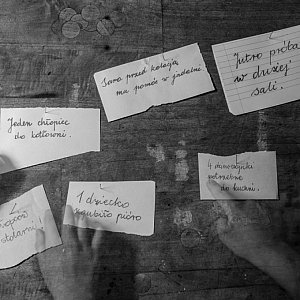 Jutro próba
w dużej
sali.
Sara przed kolacją
ma pomóc w jadalni.
Jeden chłopiec
do kotłowni.
1 dziecko
zgubiło pióro
4 dziewczynki
potrzebne
do kuchni.
stolarni!